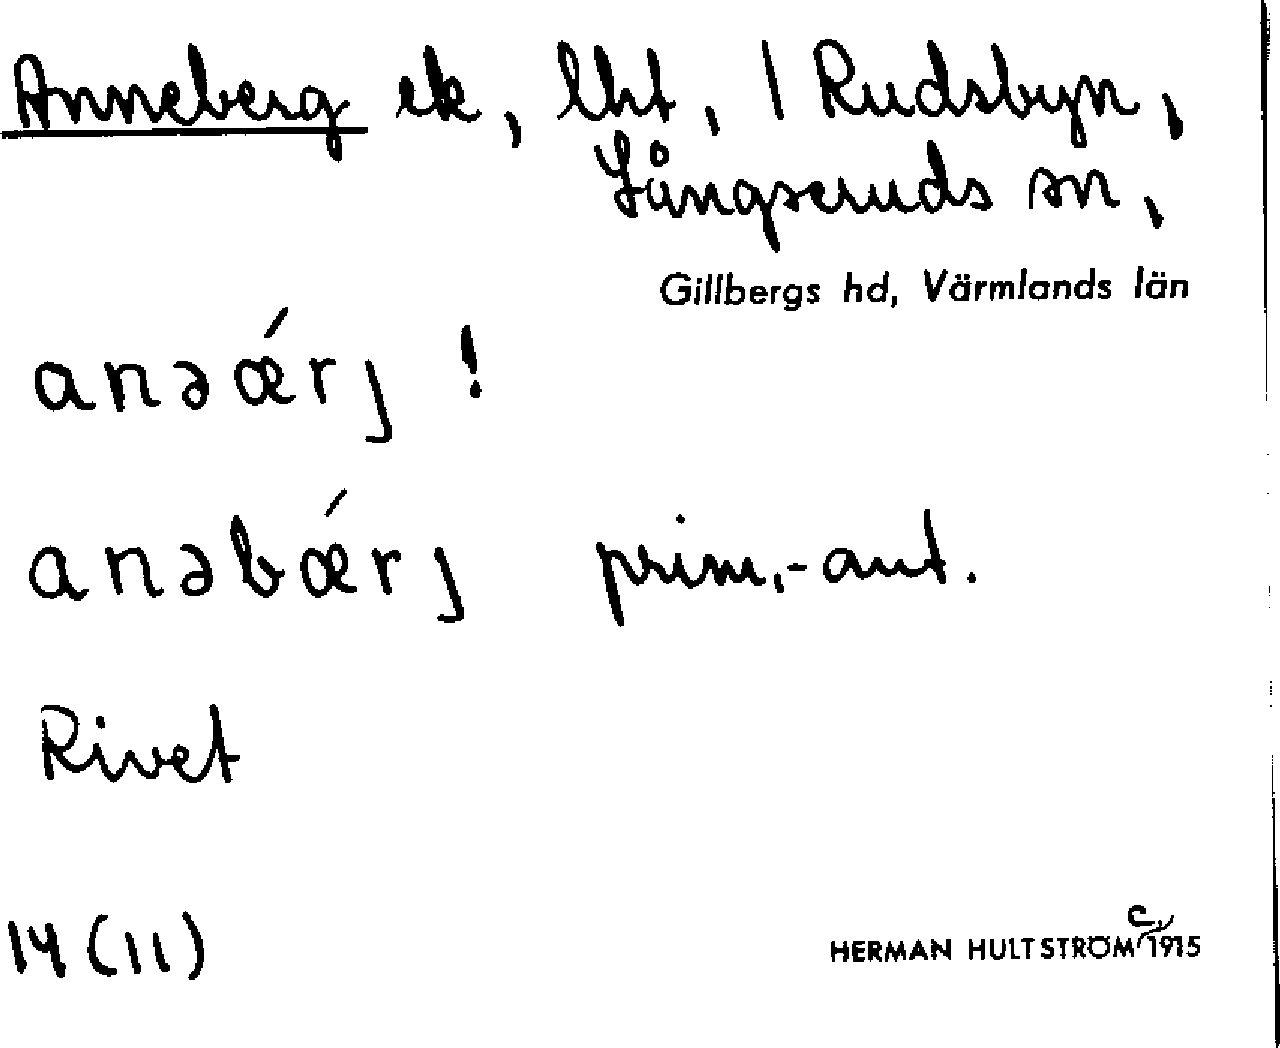 Anneberg ek, lht, 1 Rudsbyn,
Långseruds sn,
Gillbergs hd, Värmlands län
anəǽrj !
anəbǽrj prim.-aut.
Rivet
14 (11)
HERMAN HULTSTRÖM c. 1915